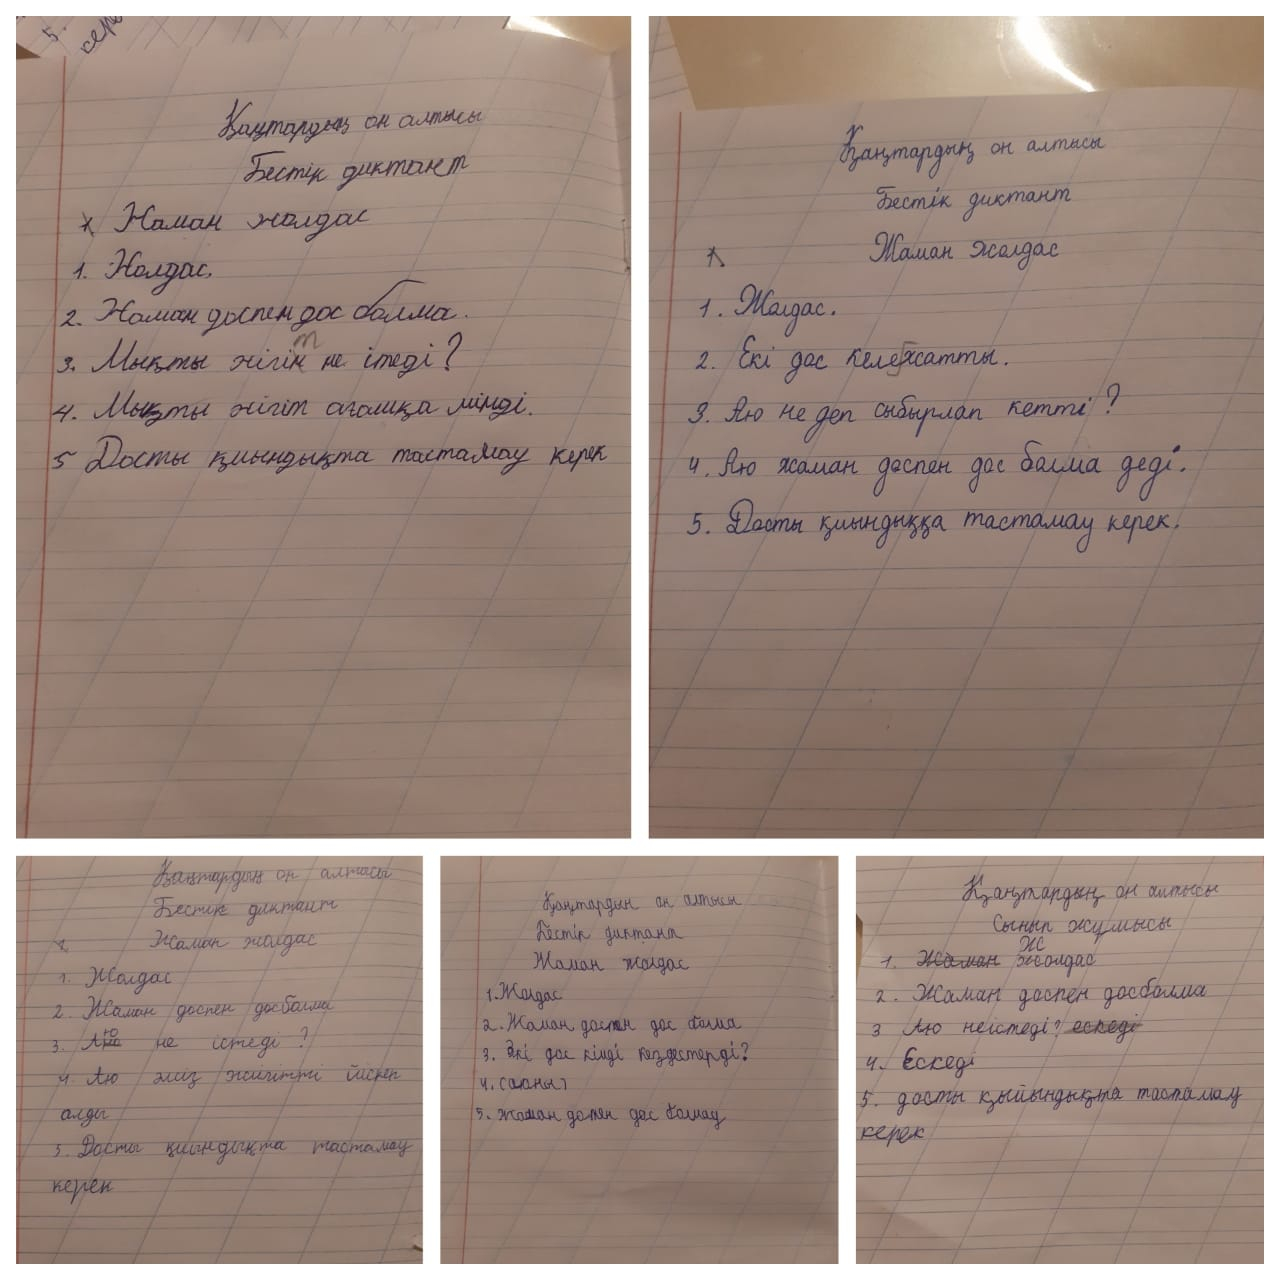 5.
Қаңтардың он алтысы
Бестік диктант
Жаман жолдас
1. Жолдас.
2. Жаман доспен дос болма.
3. Мықты жігіт не істеді?
4. Мықты жігіт ағашқа мінді.
5 Досты қиындықта тастамау керек
Қаңтардың он алтысы
Бестік диктант
Жаман жолдас
1. Жолдас.
2. Екі дос кележатты.
3. Аю не деп сыбырлап кетті?
4. Аю жаман доспен дос болма деді.
5. Досты қиындыққа тастамау керек.
Қаңтардың он алтасы
Бестік диктант
Жаман жолдас
1. Жолдас
2. Жаман доспен досболма
3. Аю не істеді?
4. Аю әлсіз жигитті иіскеп
алды
5. Досты қиындықта тастамау
керек
Қаңтардын он алтысы
Бестік диктант
Жаман жолдас
1. Жолдас
2. Жаман достен дос болма
3. Екі дос кімді кездестерді?
4.
5. жаман дотен дос болмау
Қаңтардың он алтысы
Сынып жұмысы
1. Жаман жолдас
2. Жаман доспен досболма
3 Аю неістеді? ескеді
4. Ескеді
5. досты қыйындықта тастамау
керек